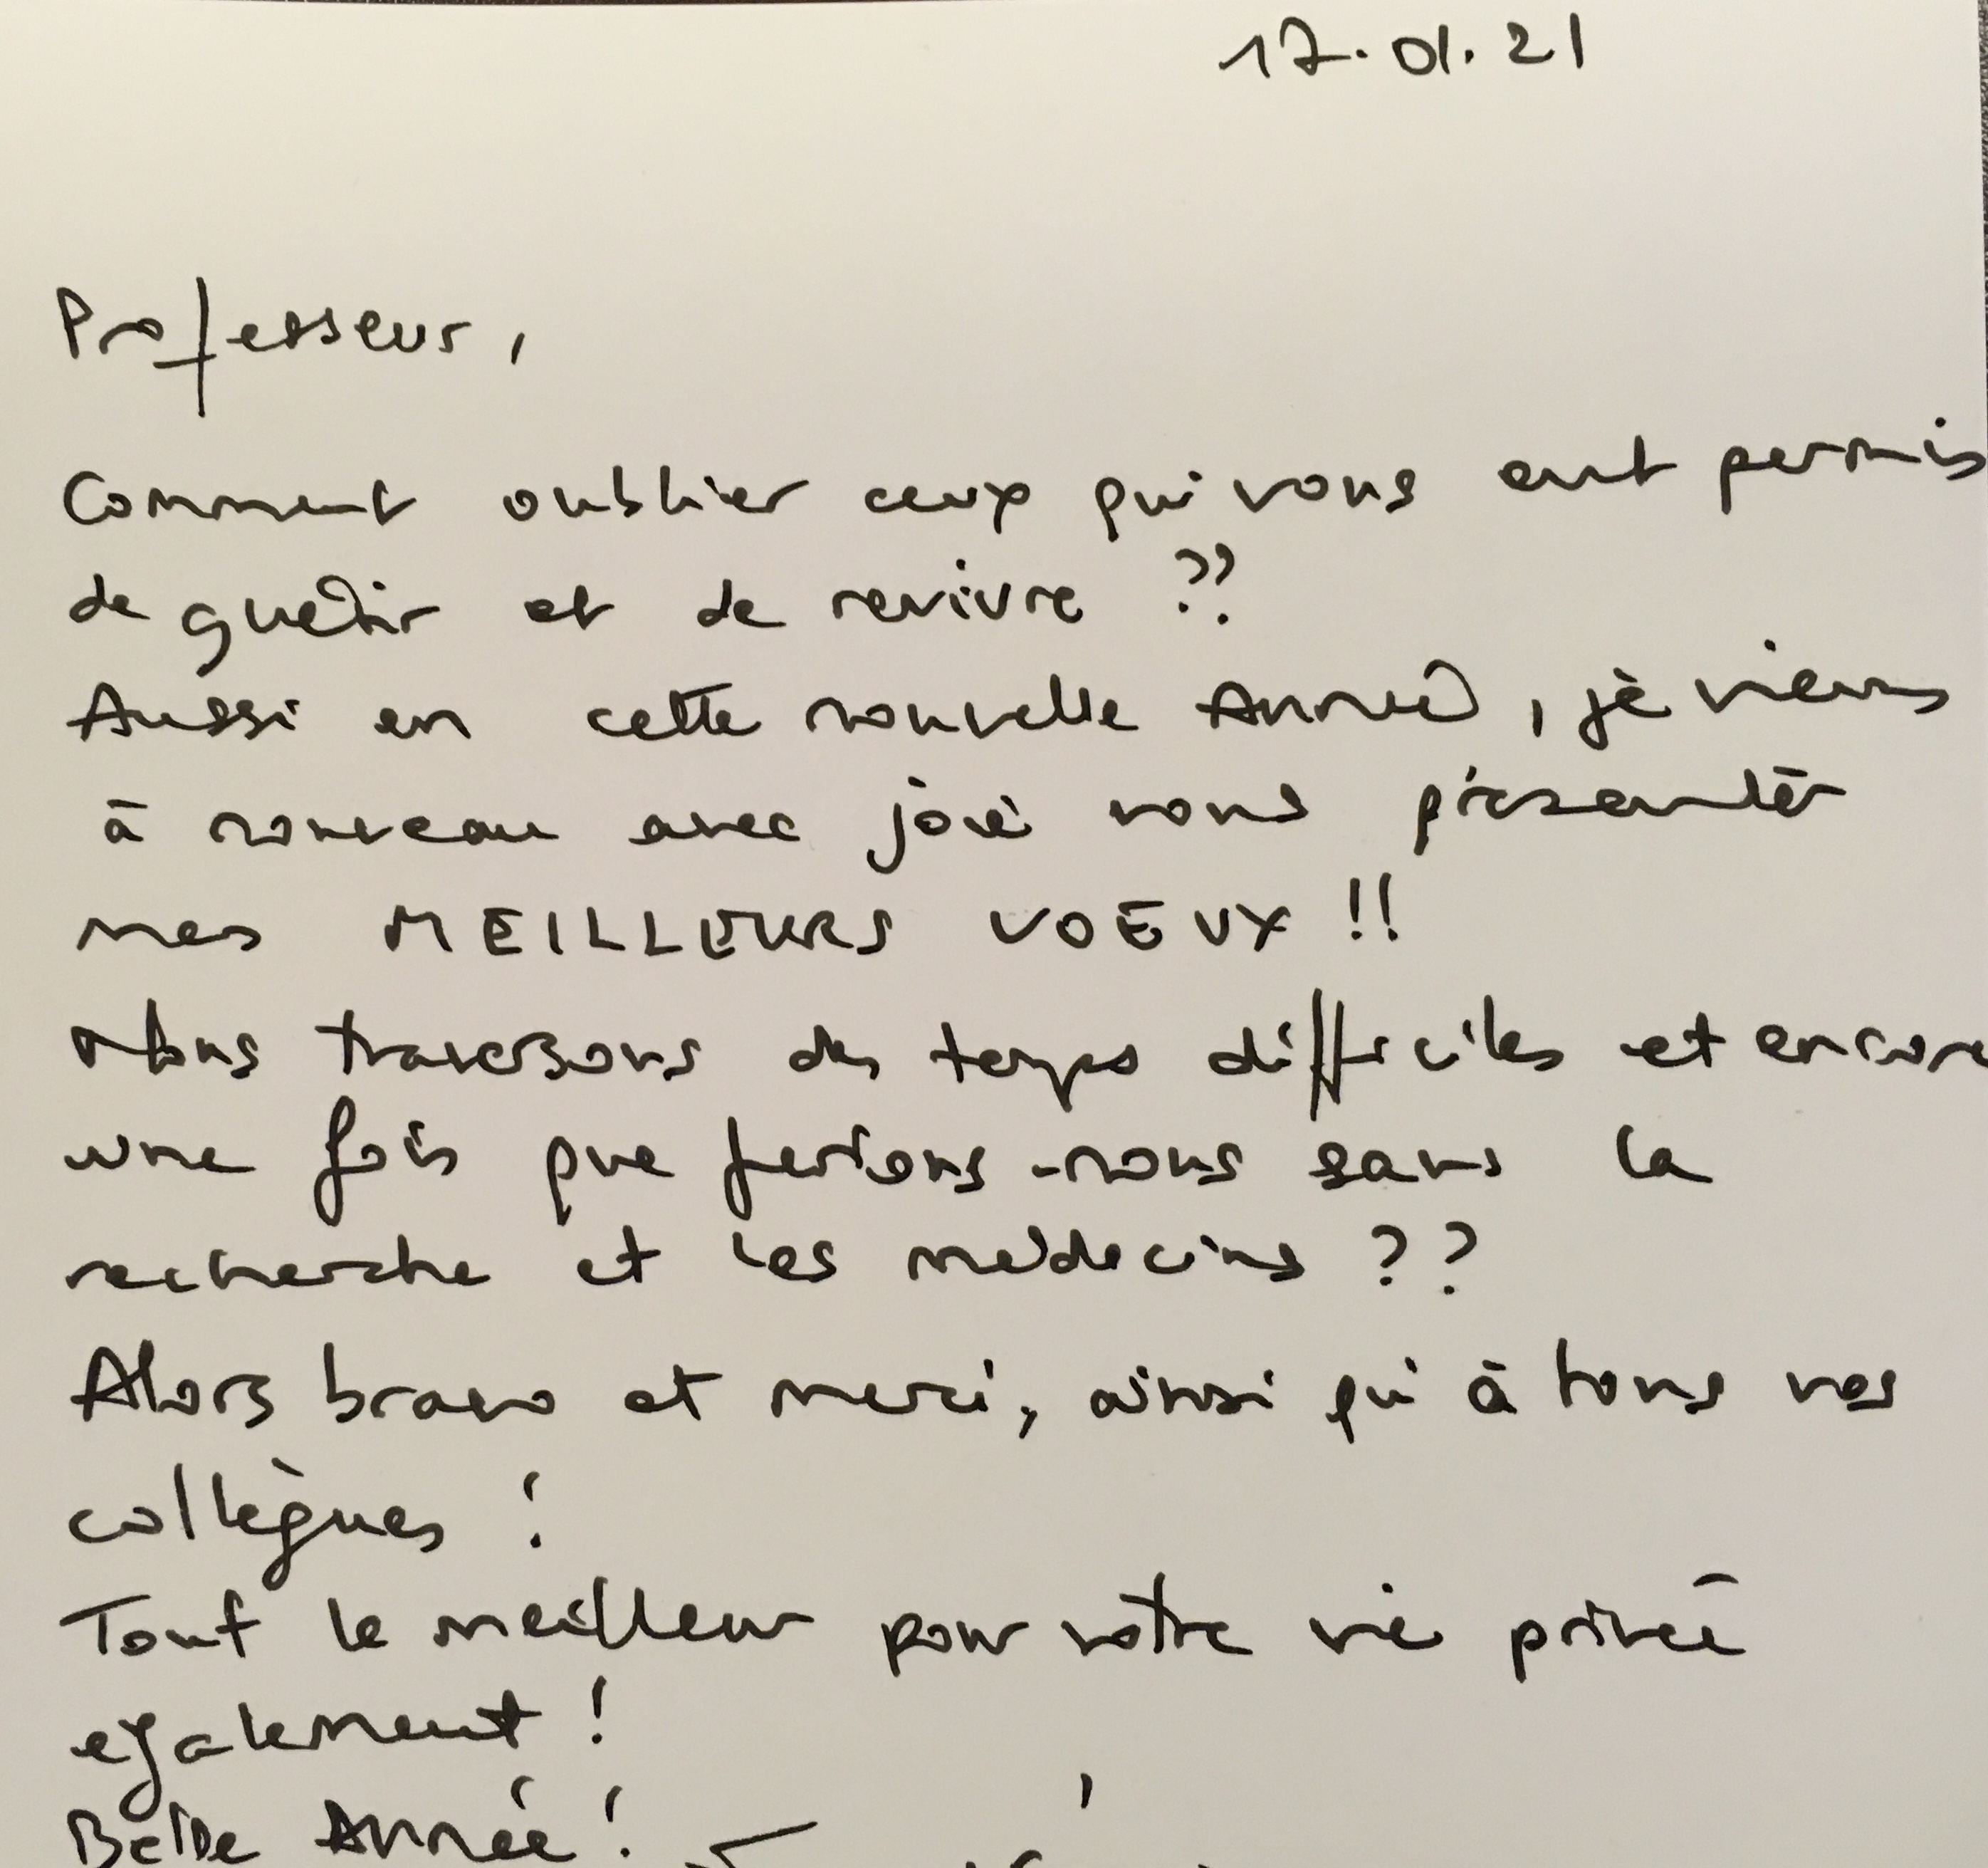 17.01.21
Professeur,
Comment oublier ceux qui vous ont permis
de guérir et de revivre ??
Aussi en cette nouvelle Année, je viens
à nouveau avec joie vous présenter
mes MEILLEURS VOEUX !!
Nous traversons des temps difficiles et encore
une fois que ferions-nous sans la
recherche et les médecins ??
Alors bravo et merci, ainsi qu'à tous vos
collègues !
Tout le meilleur pour votre vie privée
également !
Belle Année !